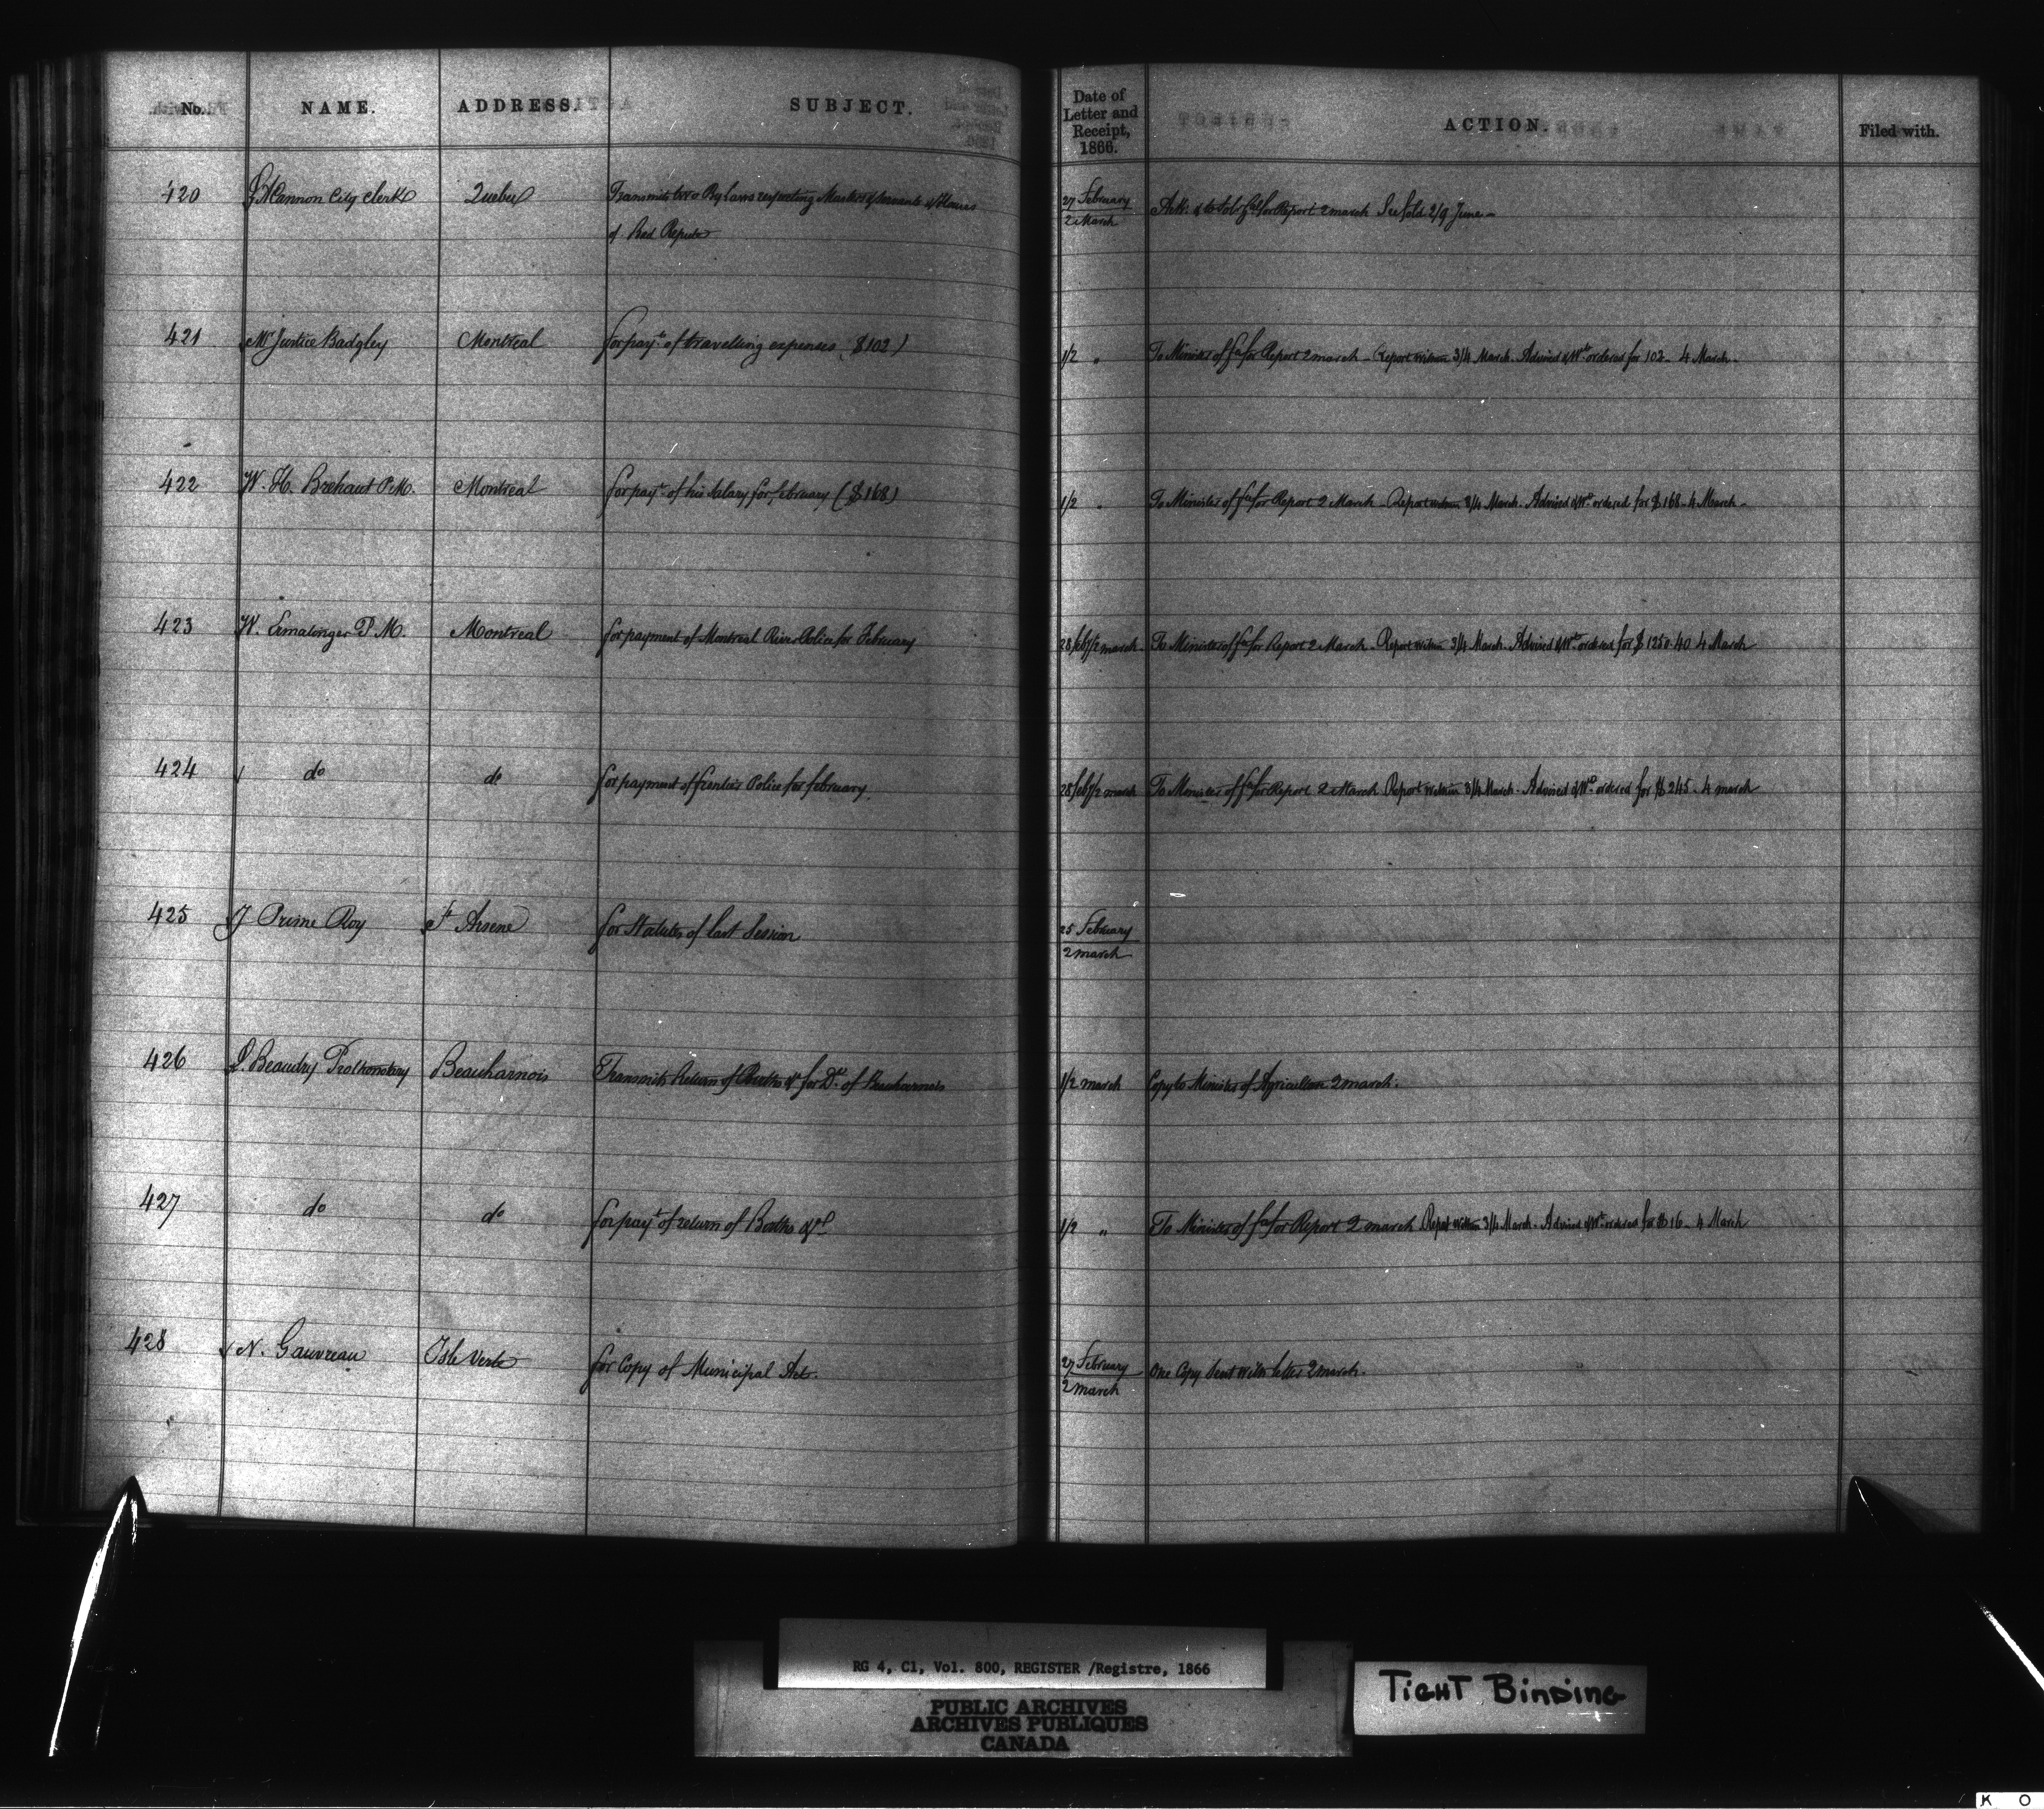 No. NAME. ADDRESS. SUBJECT. Date of Letter and Receipt, 1866. ACTION. Filed with.
420 Cannon City Clerk Quebec Transmits two By Laws respecting Masters & Servants & Houses 27 February Ack. & to Sol. Gal for Report 2 March See fold 2/9 June
of Bad Repute 2 March
421 Mr Justice Badgley Montreal for payt of travelling expenses ($102) 1/2 " To Minister of Fce for Report 2 march - Report within 3/4 March. Advised & Wt ordered for 102 - 4 March -
422 W. H. Brehaut P.M. Montreal for payt of his Salary for february ($168) 1/2 " To Minister of Fce for Report 2 March - Report within 3/4 March. Advised & Wt ordered for $168 - 4 March -
423 W. Ermatinger P.M. Montreal for payment of Montreal River Police for February 28 feb/2 march To Minister of Fce for Report 2 March - Report within 3/4 March. Advised & Wt ordered for $1250.40 4 March
424 do do for payment of frontier Police for february 28 feb/2 march To Minister of Fce for Report 2 March Report within 3/4 March - Advised & Wt ordered for $245 - 4 march
425 J Prime Roy St Arsene for Statutes of last Session 25 February
2 march
426 L. Beaudry Prothonotary Beauharnois Transmits Return of Births &c for Dt of Beauharnois 1/2 march Copy to Minister of Agriculture 2 march.
427 do do for payt of return of Births &c 1/2 " To Minister of Fce for Report 2 march Report within 3/4 March - Advised & Wt ordered for $16 - 4 March
428 N. Gauvreau Isle Verte for Copy of Municipal Act. 27 February One Copy Sent with letter 2 march.
2 march
RG 4, C1, Vol. 800, REGISTER /Registre, 1866
PUBLIC ARCHIVES
ARCHIVES PUBLIQUES
CANADA
TIGHT BINDING
K O